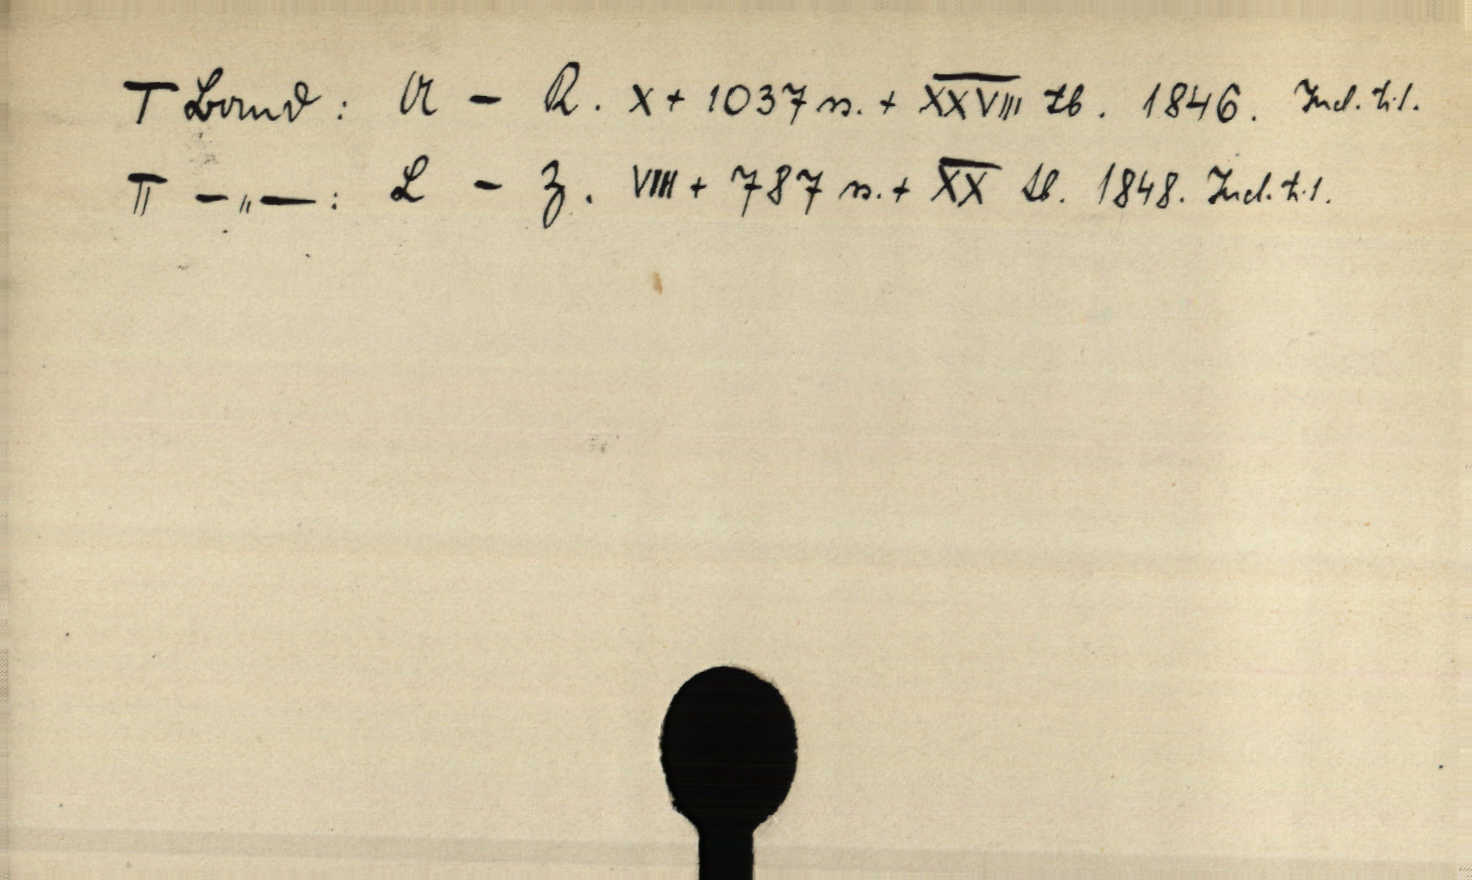 I Band : A - K. X + 1037 s. + XXVIII tb. 1846. Ind. tit.
II - „ - : L - Z. VIII + 787 s. + XX tb. 1848. Ind. tit.